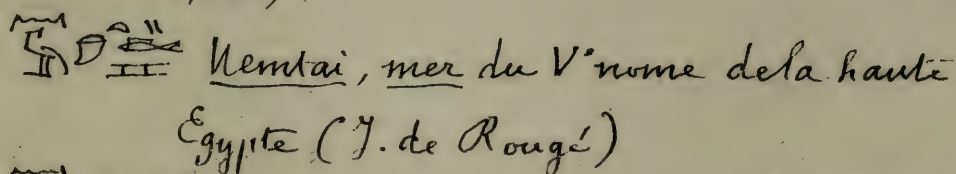 Nemtai, mer du V<sup>e</sup> nome de la haute
Egypte (J. de Rougé)